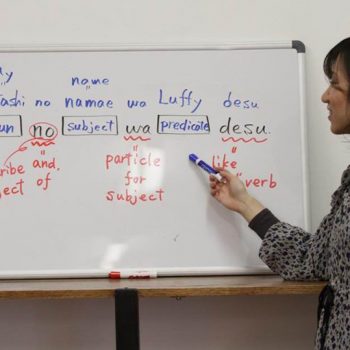 name
ashi no namae wa Luffy desu
un no subject wa predicate desu.
ribe and. particle like
ject of for verb
subject